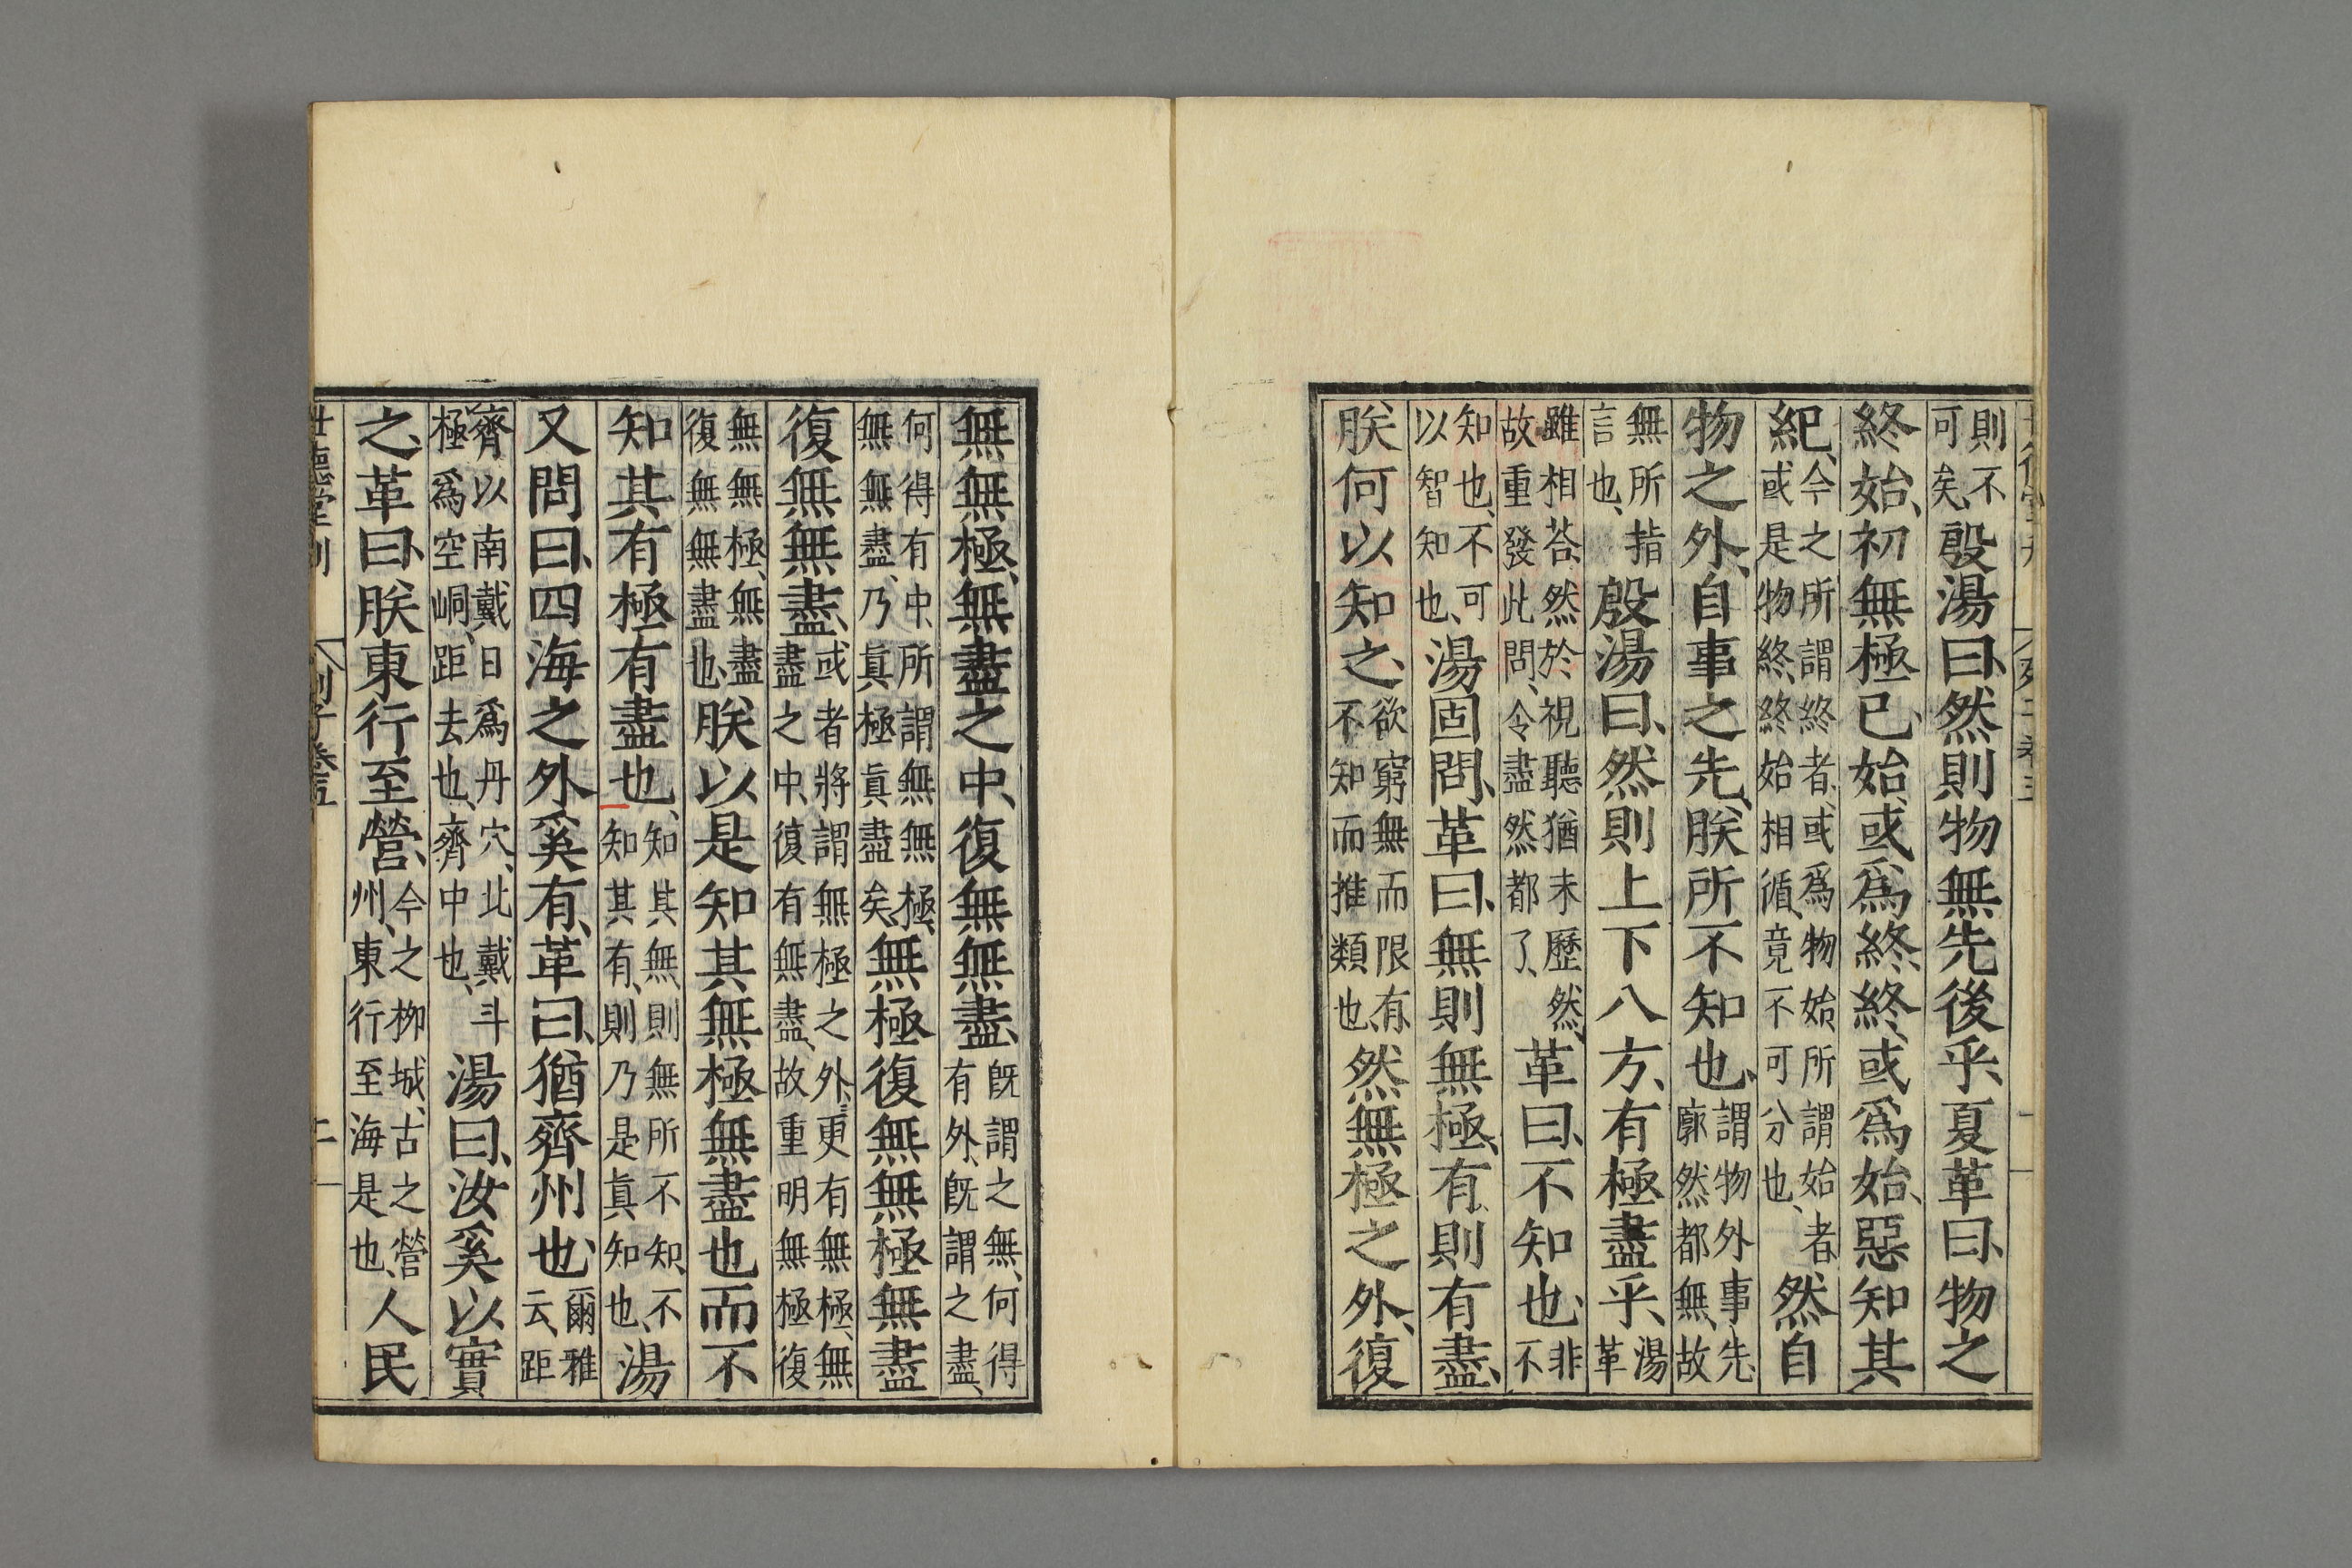 則不可矣、殷湯曰、然則物無先後乎、夏革曰、物之
終始、初無極已、始或爲終、終或爲始、惡知其
紀、今之所謂終者、或爲物始、所謂始者、或是物終、終始相循、竟不可分也、然自
物之外、自事之先、朕所不知也、謂物外事先、廓然都無、故
無所指言也、殷湯曰、然則上下八方、有極盡乎、湯革
雖相荅、然於視聽猶未歷然、故重發此問、令盡然都了、革曰、不知也、非不
知也、不可以智知也、湯固問、革曰、無則無極、有則有盡、
朕何以知之、欲窮無而限有、不知而推類也、然無極之外、復
無無極、無無盡之中、復無無盡、既謂之無、何得有外、既謂之盡、
何得有中、所謂無無極、無無盡、乃真極真盡矣、無極復無無極無盡
復無無盡、或者將謂無極之外、更有無極、無盡之中、復有無盡、故重明無極復
無無極、無盡復無無盡也、朕以是知其無極無盡也而不
知其有極有盡也、知其無、則無所不知、不知其有、則乃是真知也、湯
又問曰、四海之外奚有、革曰、猶齊州也、爾雅云、距
齊以南戴日爲丹穴、北戴斗極爲空峒、距去也、齊中也、湯曰、汝奚以實
之、革曰、朕東行至營、今之柳城、古之營州、東行至海是也、人民
世德堂刊
列子卷五
二